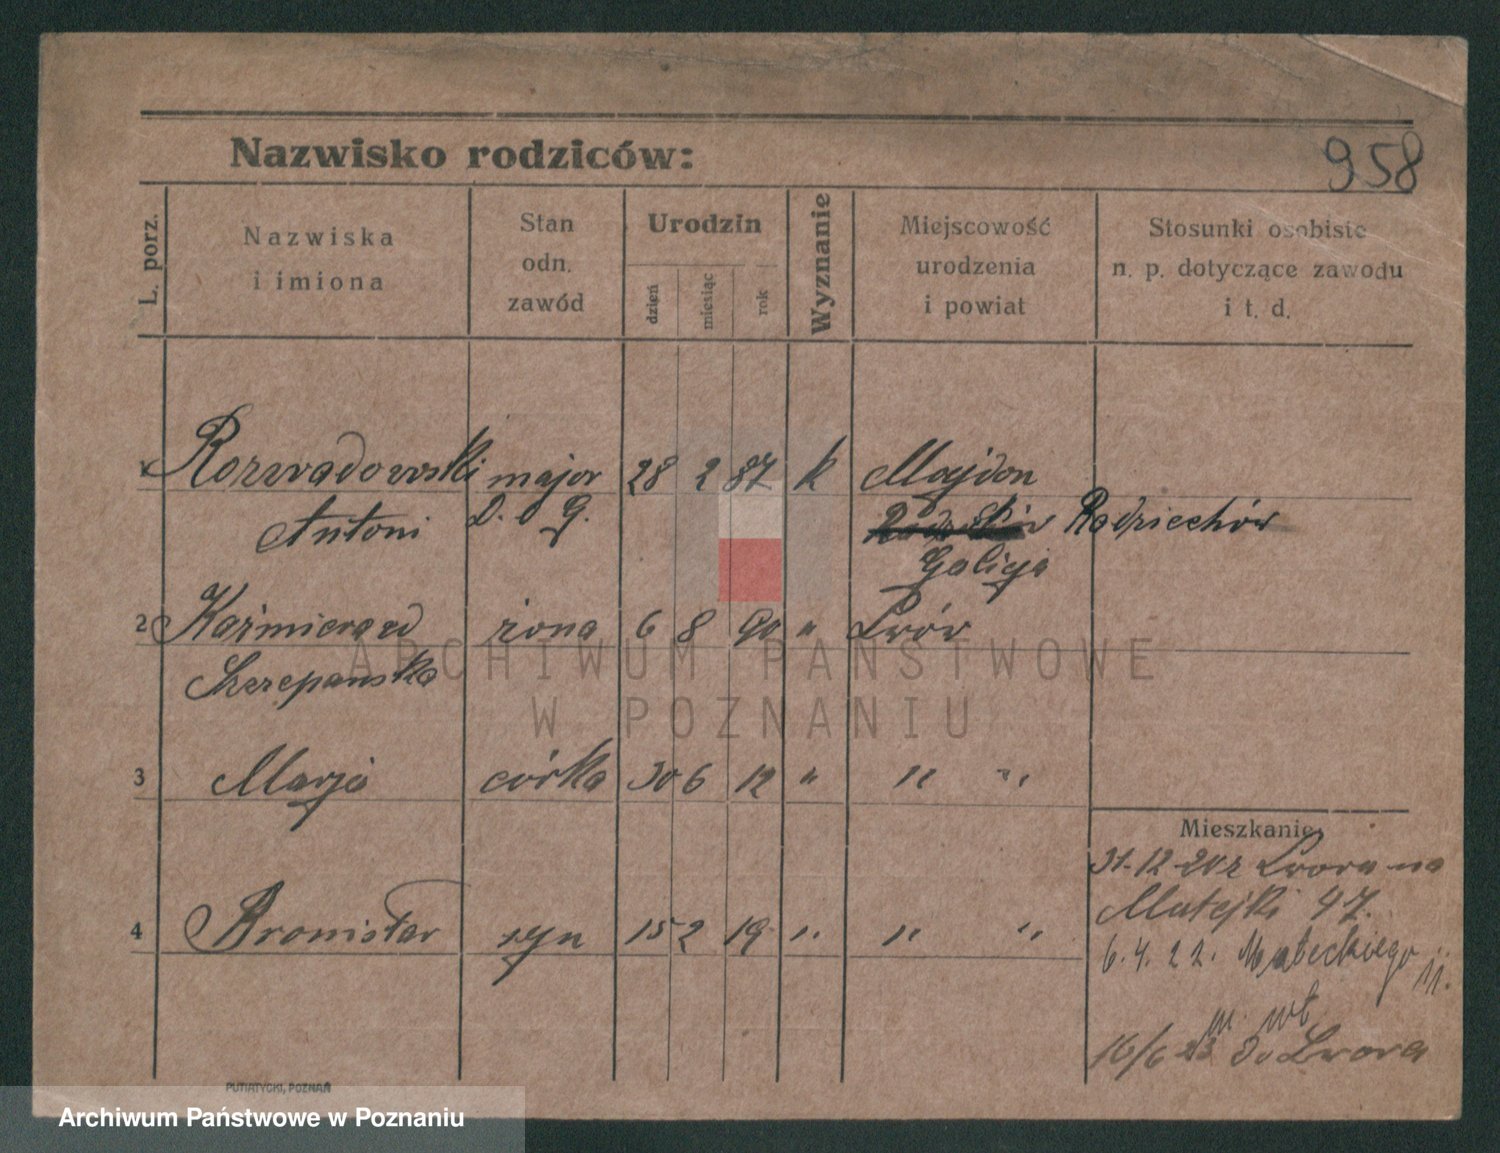 958
Nazwisko rodziców:
L. porz.
Nazwiska
i imiona
Stan
odn.
zawód
Urodzin
dzień
miesiąc
rok
Wyznanie
Miejscowość
urodzenia
i powiat
Stosunki osobiste
n. p. dotyczące zawodu
i t. d.
Rozwadowski major 28 2 87 k Majdan
Antoni D. O G. Radziechów
Galicja
2 Kaźmiera zd żona 6 8 90 " Lwów
Szczepańska
3 Marja córka 30 6 12 " " "
Mieszkanie
31-12-20 z Lwowa na
Matejki 47.
4 Bronisław syn 15 2 19 " " "
6.4.22. Małeckiego 11.
16/6 23 do Lwowa
PUTIATYCKI, POZNAŃ
ARCHIWUM PAŃSTWOWE
W POZNANIU
Archiwum Państwowe w Poznaniu